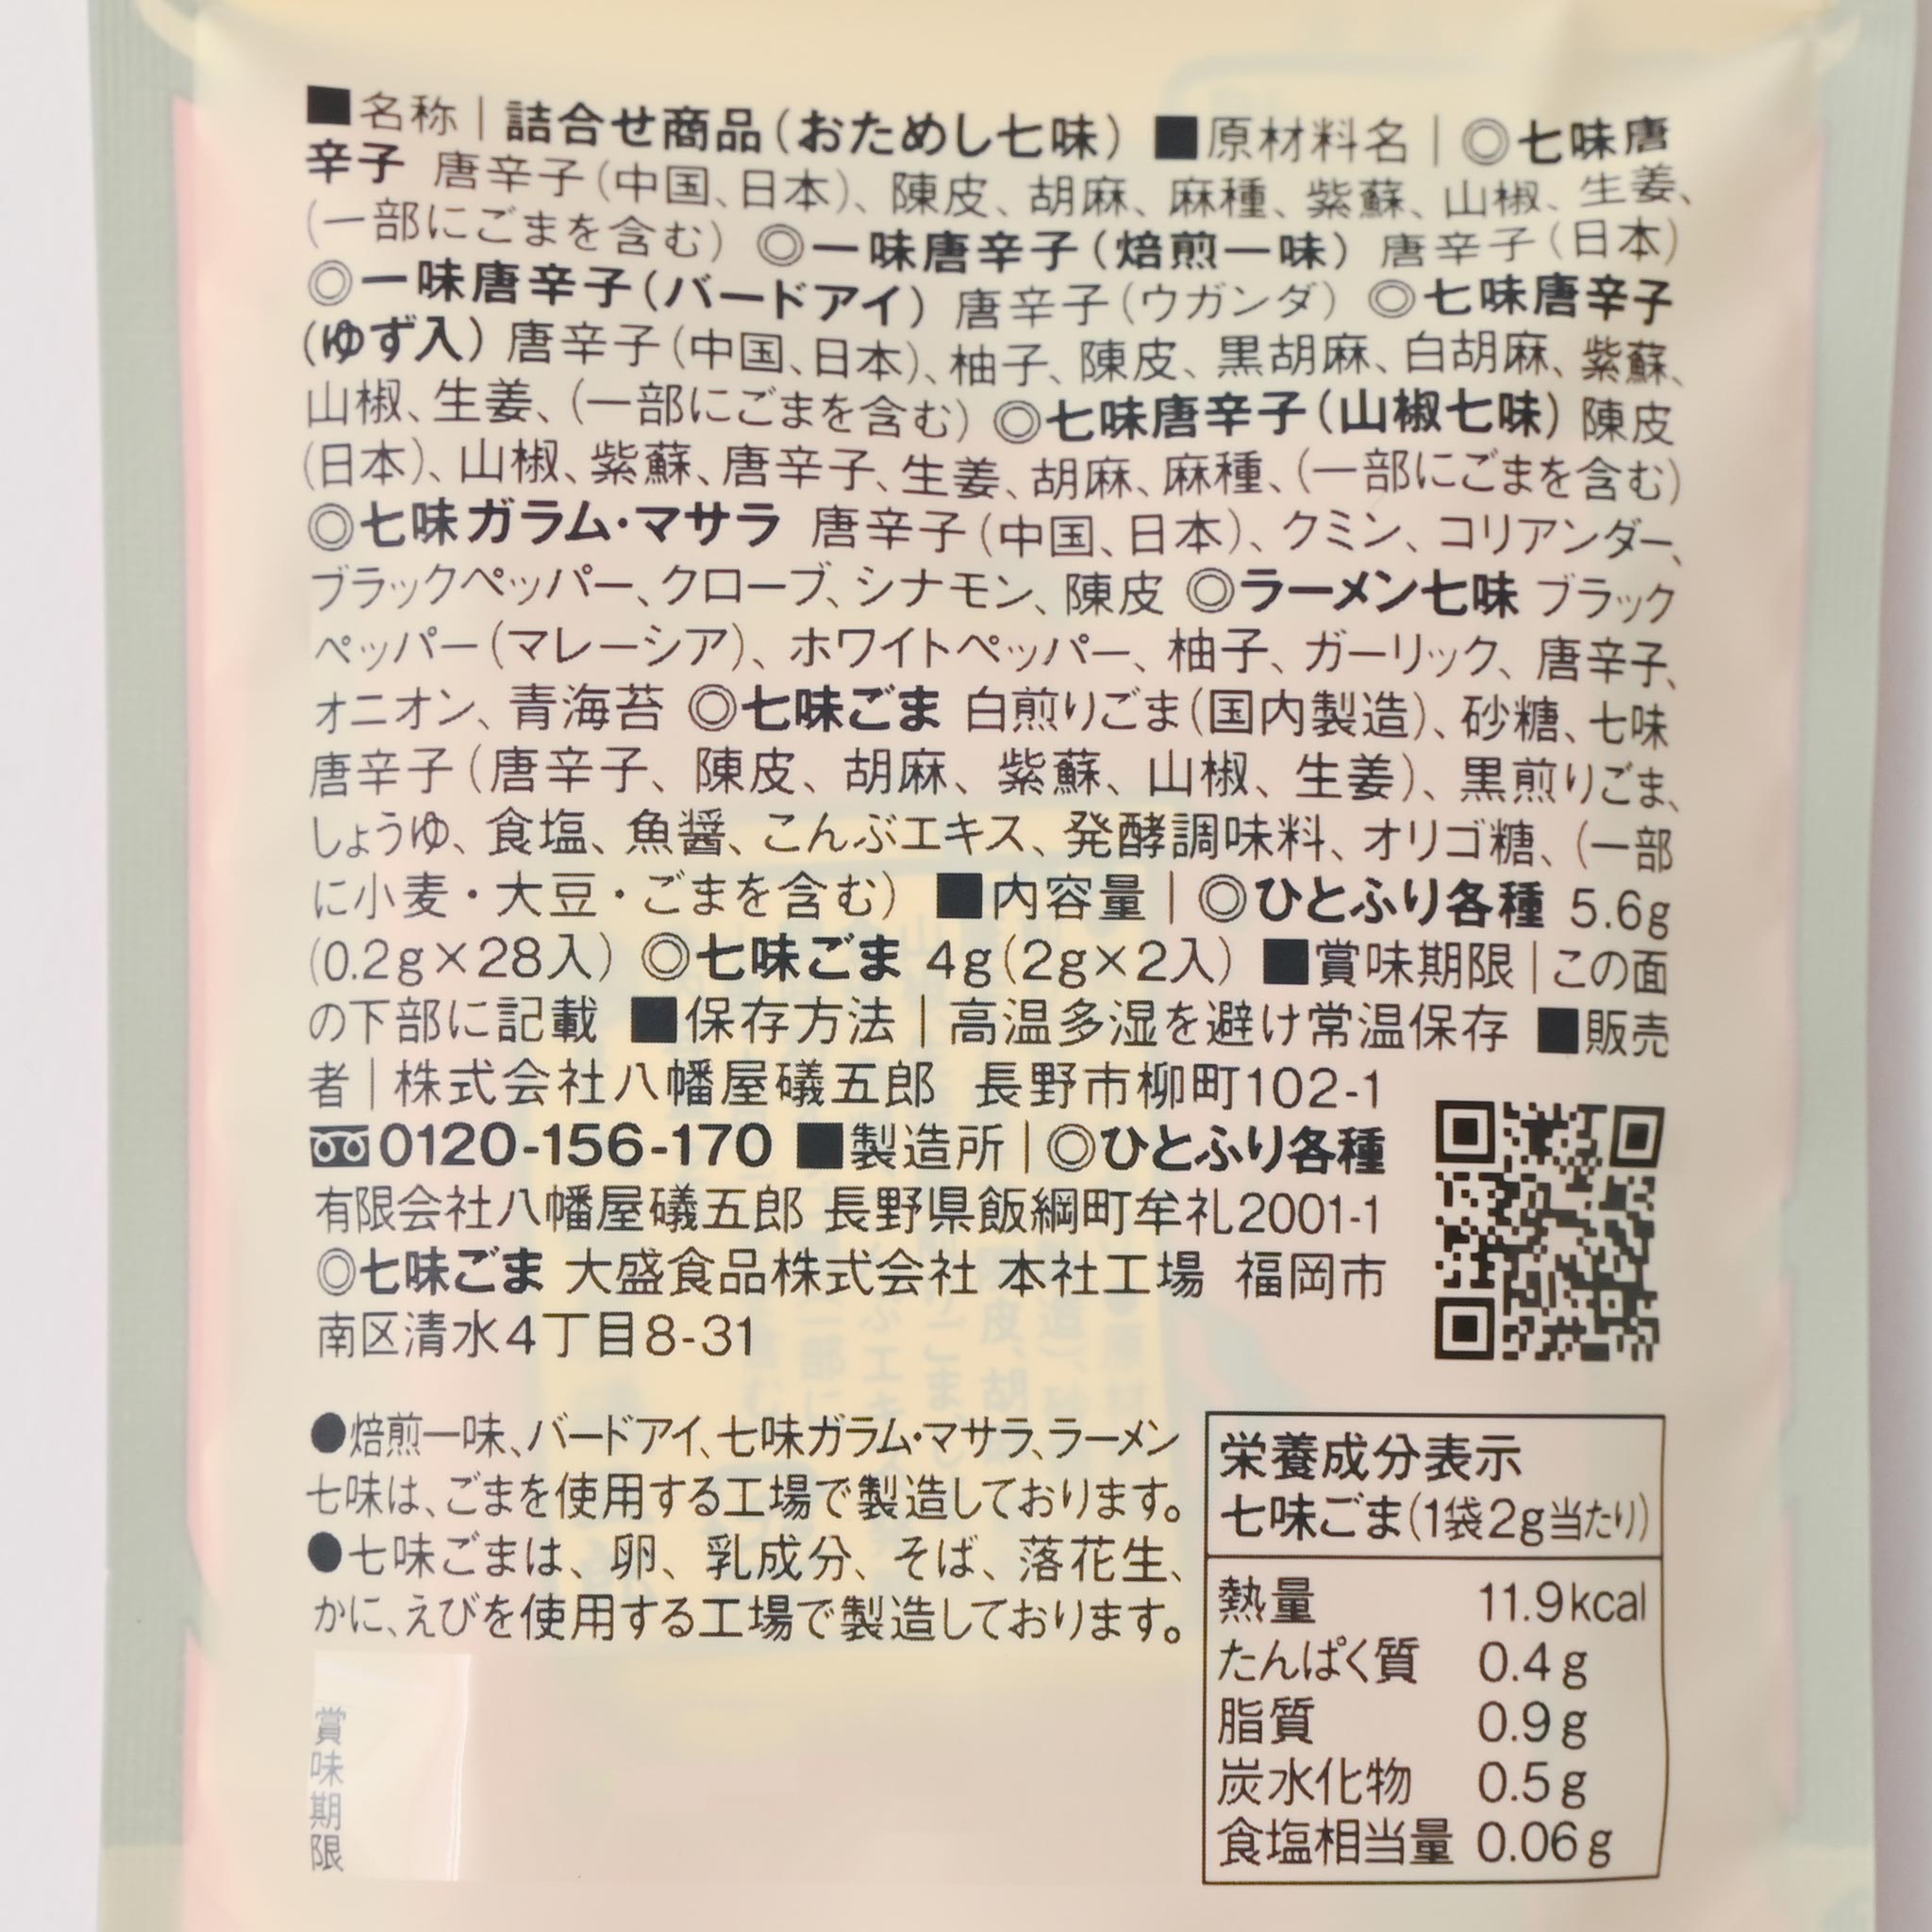 ■名称｜詰合せ商品(おためし七味) ■原材料名｜◎七味唐
辛子 唐辛子(中国、日本)、陳皮、胡麻、麻種、紫蘇、山椒、生姜、
(一部にごまを含む) ◎一味唐辛子(焙煎一味) 唐辛子(日本)
◎一味唐辛子(バードアイ) 唐辛子(ウガンダ) ◎七味唐辛子
(ゆず入) 唐辛子(中国、日本)、柚子、陳皮、黒胡麻、白胡麻、紫蘇、
山椒、生姜、(一部にごまを含む) ◎七味唐辛子(山椒七味) 陳皮
(日本)、山椒、紫蘇、唐辛子、生姜、胡麻、麻種、(一部にごまを含む)
◎七味ガラム・マサラ 唐辛子(中国、日本)、クミン、コリアンダー、
ブラックペッパー、クローブ、シナモン、陳皮 ◎ラーメン七味 ブラック
ペッパー(マレーシア)、ホワイトペッパー、柚子、ガーリック、唐辛子、
オニオン、青海苔 ◎七味ごま 白煎りごま(国内製造)、砂糖、七味
唐辛子(唐辛子、陳皮、胡麻、紫蘇、山椒、生姜)、黒煎りごま、
しょうゆ、食塩、魚醤、こんぶエキス、発酵調味料、オリゴ糖、(一部
に小麦・大豆・ごまを含む) ■内容量｜◎ひとふり各種 5.6g
(0.2g×28入) ◎七味ごま 4g(2g×2入) ■賞味期限｜この面
の下部に記載 ■保存方法｜高温多湿を避け常温保存 ■販売
者｜株式会社八幡屋礒五郎 長野市柳町102-1
0120-156-170 ■製造所｜◎ひとふり各種
有限会社八幡屋礒五郎 長野県飯綱町牟礼2001-1
◎七味ごま 大盛食品株式会社 本社工場 福岡市
南区清水4丁目8-31
●焙煎一味、バードアイ、七味ガラム・マサラ、ラーメン
七味は、ごまを使用する工場で製造しております。
●七味ごまは、卵、乳成分、そば、落花生、
かに、えびを使用する工場で製造しております。
賞味期限
栄養成分表示
七味ごま(1袋2g当たり)
熱量 11.9kcal
たんぱく質 0.4g
脂質 0.9g
炭水化物 0.5g
食塩相当量 0.06g